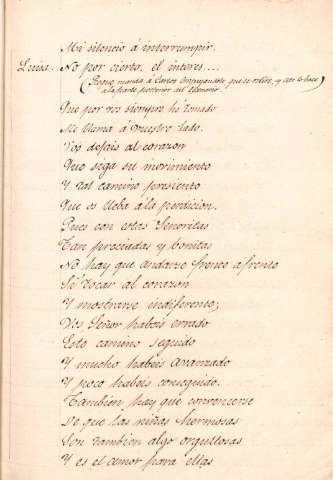 Mi silencio á interrumpir.
Luisa. No por cierto, el interes....
(Pedro manda á Carlos que se retire, y este lo hace
a la parte posterior del escenario.
Que por vos siempre hé tomado
Me llama á vuestro lado.
Vos dejais al corazon
Que siga su movimiento
Y tal camino presiento
Que os lleba a la perdicion.
Pues con estas Señoritas
Tan preciadas y bonitas
No hay que andarse frente a frente
Sé tocar al corazon
Y mostrarse indiferente;
Vos Señor habeis errado
Este camino seguido
Y mucho habeis avanzado
Y poco habeis conseguido.
Tambien hay que convencerse
De que las niñas hermosas
Son tambien algo orgullosas
Y es el amor para ellas